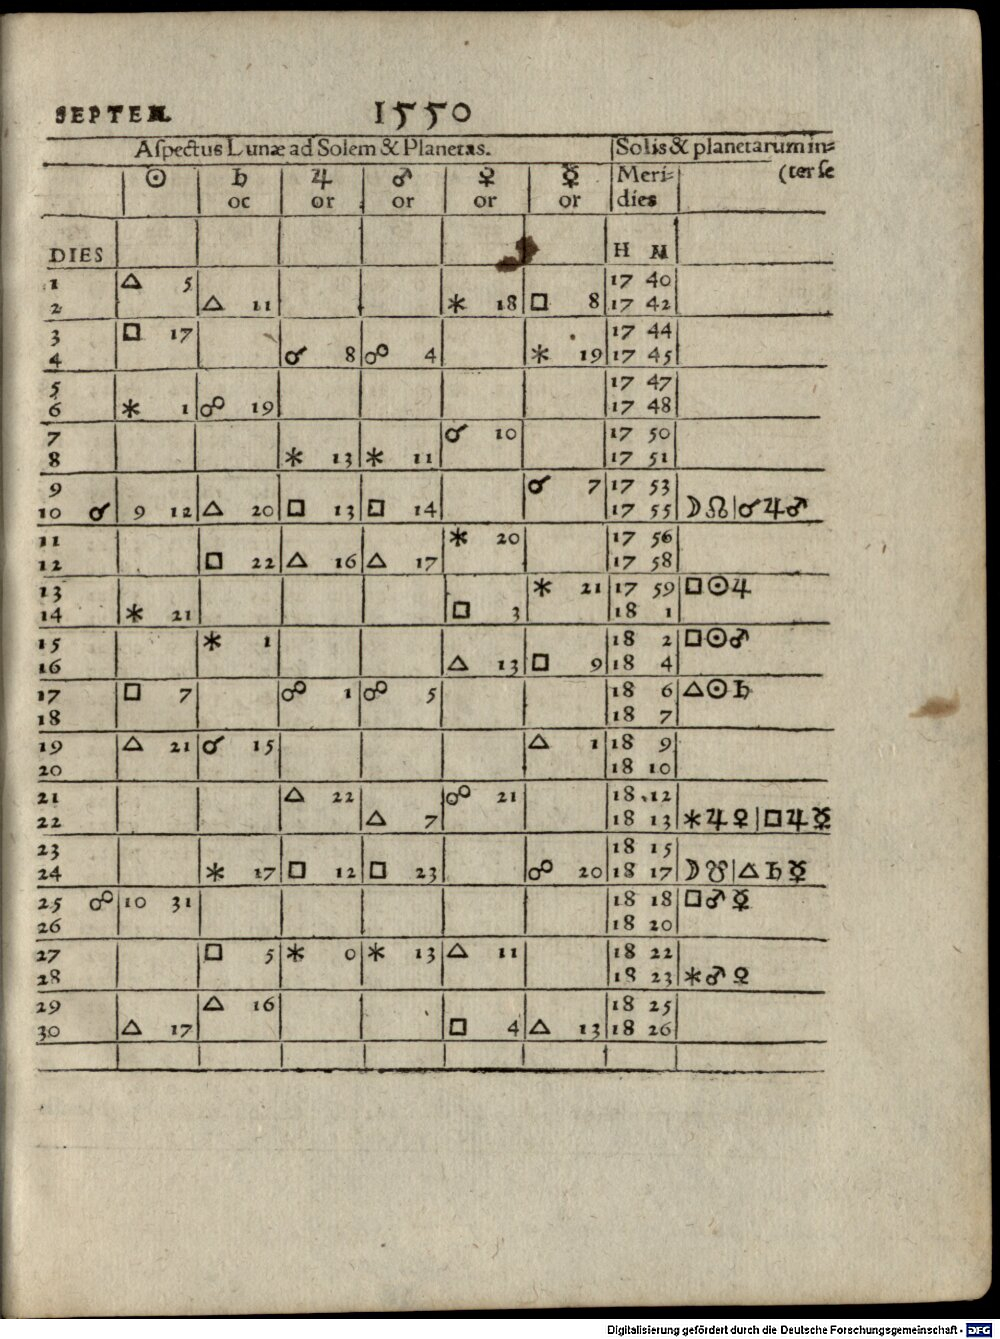 SEPTEM. 1550
Aspectus Lunæ ad Solem & Planetas. Solis & planetarum in=
☉ ♄ ♃ ♂ ♀ ☿ Meri= (ter se
oc or or or or dies
DIES H M
1 △ 5 17 40
2 △ 11 ⚹ 18 □ 8 17 42
3 □ 17 17 44
4 ☌ 8 ☍ 4 ⚹ 19 17 45
5 17 47
6 ⚹ 1 ☍ 19 17 48
7 ☌ 10 17 50
8 ⚹ 13 ⚹ 11 17 51
9 ☌ 7 17 53
10 ☌ 9 12 △ 20 □ 13 □ 14 17 55 ☽ ☊ | ☌ ♃ ♂
11 ⚹ 20 17 56
12 □ 22 △ 16 △ 17 17 58
13 ⚹ 21 17 59 □ ☉ ♃
14 ⚹ 21 □ 3 18 1
15 ⚹ 1 18 2 □ ☉ ♂
16 △ 13 □ 9 18 4
17 □ 7 ☍ 1 ☍ 5 18 6 △ ☉ ♄
18 18 7
19 △ 21 ☌ 15 △ 1 18 9
20 18 10
21 △ 22 ☍ 21 18 12
22 △ 7 18 13 ⚹ ♃ ♀ | □ ♃ ☿
23 18 15
24 ⚹ 17 □ 12 □ 23 ☍ 20 18 17 ☽ ☋ | △ ♄ ☿
25 ☍ 10 31 18 18 □ ♂ ☿
26 18 20
27 □ 5 ⚹ 0 ⚹ 13 △ 11 18 22
28 18 23 ⚹ ♂ ♀
29 △ 16 18 25
30 △ 17 □ 4 △ 13 18 26
Digitalisierung gefördert durch die Deutsche Forschungsgemeinschaft - DFG